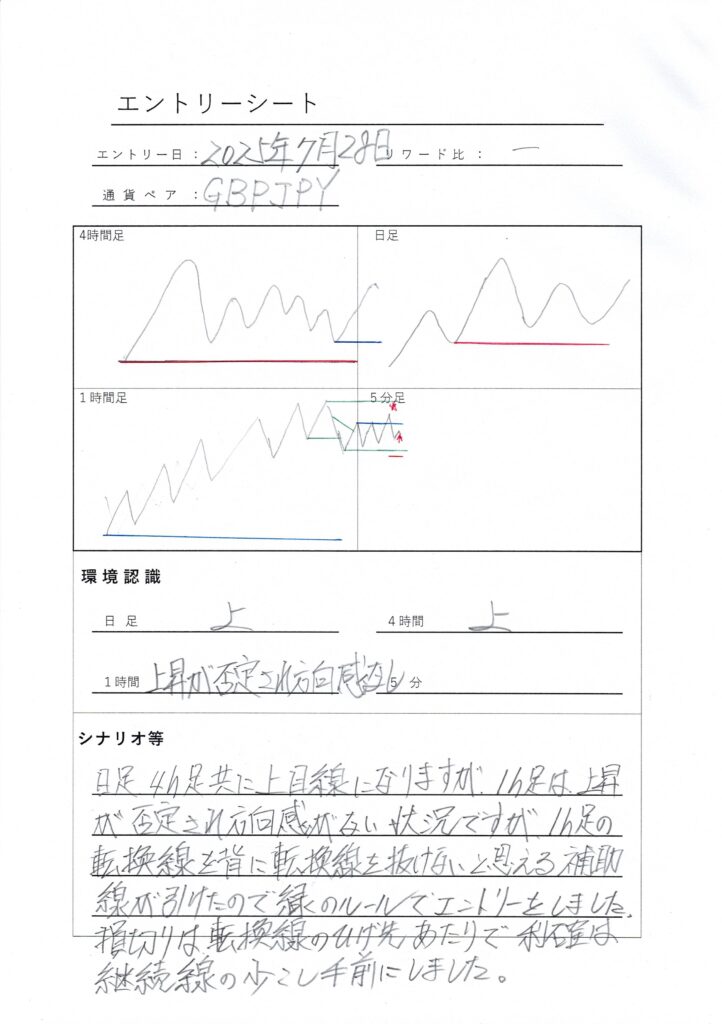 エントリーシート
エントリー日：2025年7月28日 リワード比：ー
通貨ペア：GBPJPY
4時間足 日足
1時間足 5分足
環境認識
日足 上 4時間 上
1時間 上昇が否定され方向感なし 5分
シナリオ等
日足 4h足共に上目線になりますが、1h足は上昇
が否定され方向感がない状況ですが、1h足の
転換線を背に転換線を抜けないと思える補助
線が引けたので緑のルールでエントリーをしました。
損切りは転換線のひげ先あたりで利確は
継続線の少こし手前にしました。